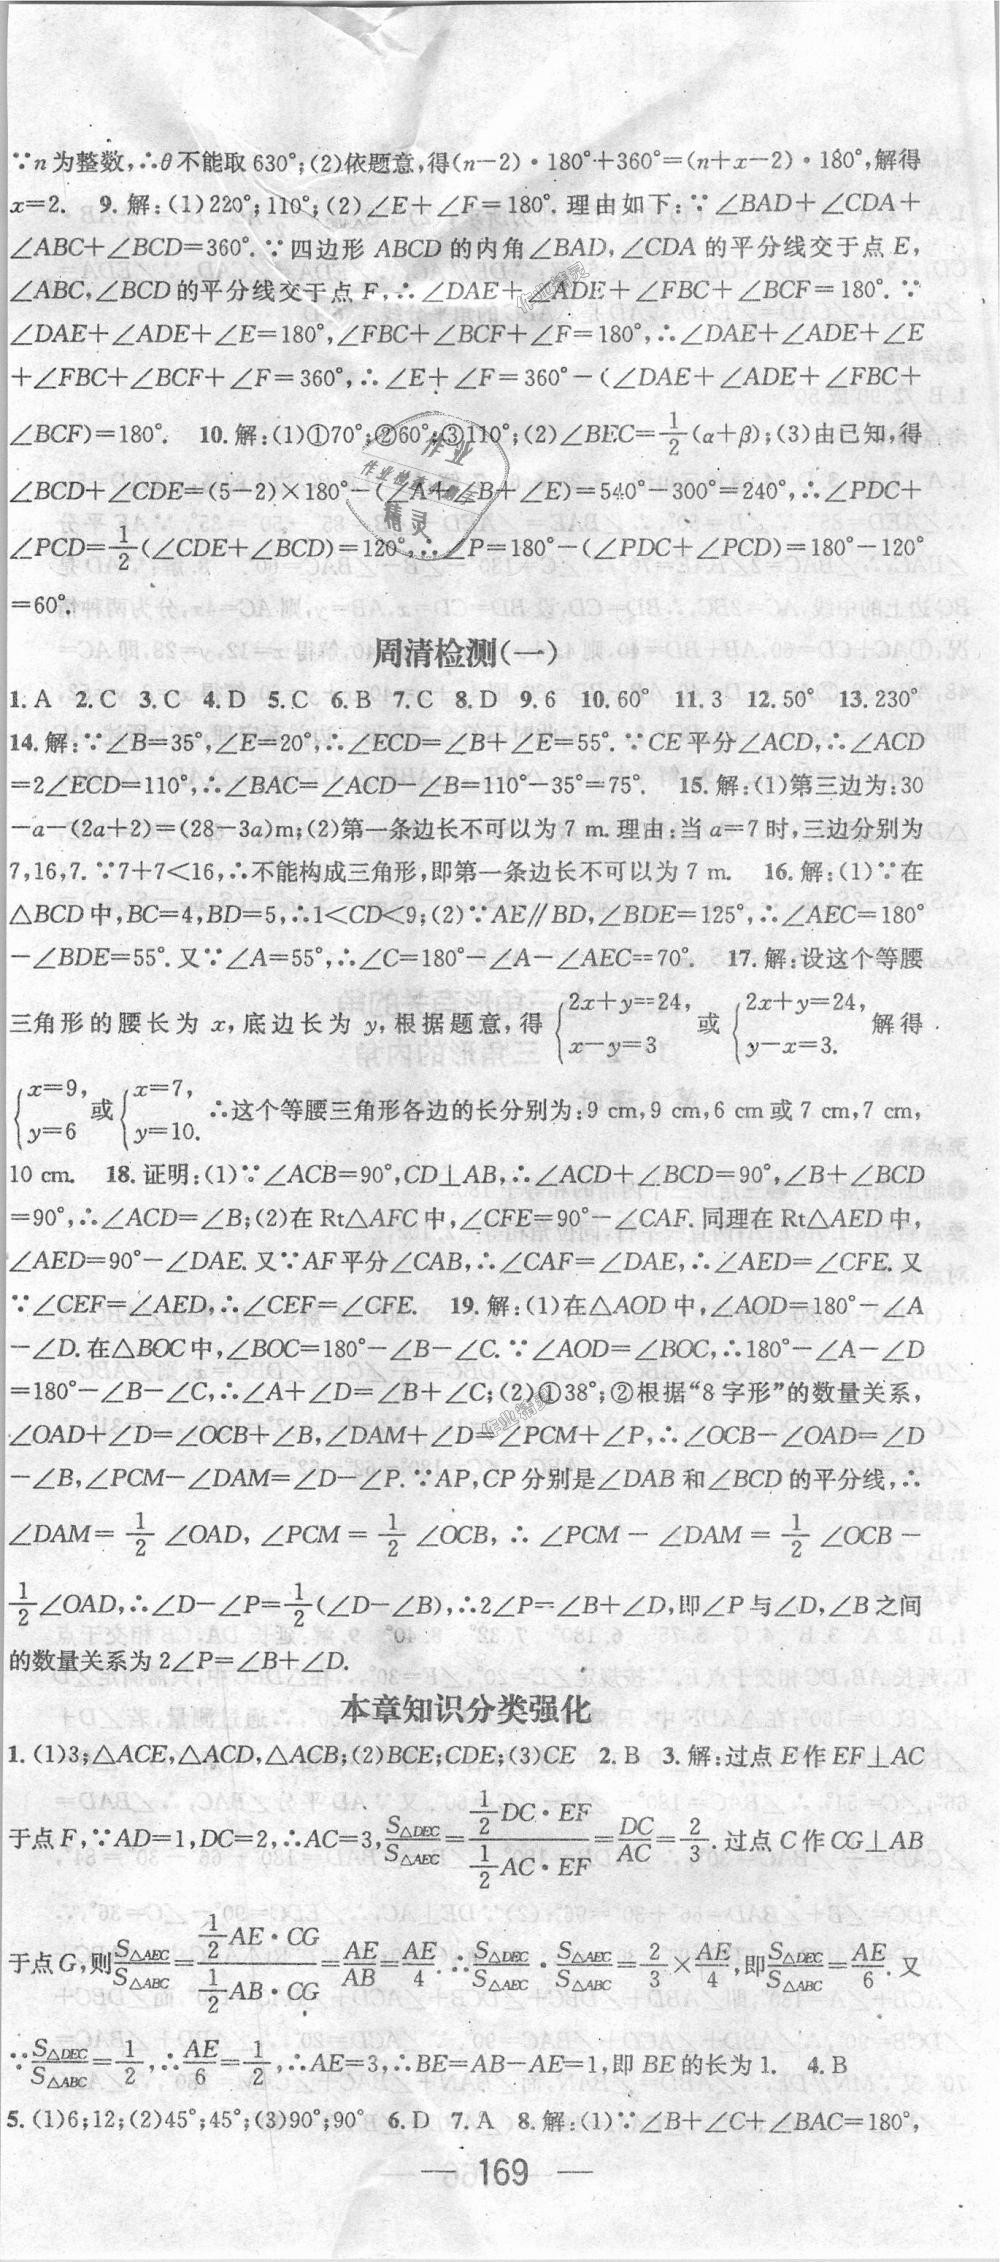 ∵n为整数,∴θ不能取630°;(2)依题意,得(n-2)·180°+360°=(n+x-2)·180°,解得
x=2. 9.解:(1)220°;110°;(2)∠E+∠F=180°.理由如下:∵∠BAD+∠CDA+
∠ABC+∠BCD=360°.∵四边形ABCD的内角∠BAD,∠CDA的平分线交于点E,
∠ABC,∠BCD的平分线交于点F,∴∠DAE+∠ADE+∠FBC+∠BCF=180°.∵
∠DAE+∠ADE+∠E=180°,∠FBC+∠BCF+∠F=180°,∴∠DAE+∠ADE+∠E
+∠FBC+∠BCF+∠F=360°,∴∠E+∠F=360°-(∠DAE+∠ADE+∠FBC+
∠BCF)=180°. 10.解:(1)①70°;②60°;③110°;(2)∠BEC=1/2(α+β);(3)由已知,得
∠BCD+∠CDE=(5-2)×180°-(∠A+∠B+∠E)=540°-300°=240°,∴∠PDC+
∠PCD=1/2(∠CDE+∠BCD)=120°,∴∠P=180°-(∠PDC+∠PCD)=180°-120°
=60°.
周清检测(一)
1.A 2.C 3.C 4.D 5.C 6.B 7.C 8.D 9.6 10.60° 11.3 12.50° 13.230°
14.解:∵∠B=35°,∠E=20°,∴∠ECD=∠B+∠E=55°.∵CE平分∠ACD,∴∠ACD
=2∠ECD=110°,∴∠BAC=∠ACD-∠B=110°-35°=75°. 15.解:(1)第三边为:30
-a-(2a+2)=(28-3a)m;(2)第一条边长不可以为7 m.理由:当a=7时,三边分别为
7,16,7.∵7+7<16,∴不能构成三角形,即第一条边长不可以为7 m. 16.解:(1)∵在
△BCD中,BC=4,BD=5,∴1<CD<9;(2)∵AE∥BD,∠BDE=125°,∴∠AEC=180°
-∠BDE=55°.又∵∠A=55°,∴∠C=180°-∠A-∠AEC=70°. 17.解:设这个等腰
三角形的腰长为x,底边长为y,根据题意,得{2x+y=24, x-y=3 或{2x+y=24, y-x=3. 解得
{x=9, y=6 或{x=7, y=10. ∴这个等腰三角形各边的长分别为:9 cm,9 cm,6 cm或7 cm,7 cm,
10 cm. 18.证明:(1)∵∠ACB=90°,CD⊥AB,∴∠ACD+∠BCD=90°,∠B+∠BCD
=90°,∴∠ACD=∠B;(2)在Rt△AFC中,∠CFE=90°-∠CAF.同理在Rt△AED中,
∠AED=90°-∠DAE.又∵AF平分∠CAB,∴∠CAF=∠DAE,∴∠AED=∠CFE.又
∵∠CEF=∠AED,∴∠CEF=∠CFE. 19.解:(1)在△AOD中,∠AOD=180°-∠A
-∠D.在△BOC中,∠BOC=180°-∠B-∠C.∵∠AOD=∠BOC,∴180°-∠A-∠D
=180°-∠B-∠C,∴∠A+∠D=∠B+∠C;(2)①38°;②根据“8字形”的数量关系,
∠OAD+∠D=∠OCB+∠B,∠DAM+∠D=∠PCM+∠P,∴∠OCB-∠OAD=∠D
-∠B,∠PCM-∠DAM=∠D-∠P.∵AP,CP分别是∠DAB和∠BCD的平分线,∴
∠DAM=1/2∠OAD,∠PCM=1/2∠OCB,∴∠PCM-∠DAM=1/2∠OCB-
1/2∠OAD,∴∠D-∠P=1/2(∠D-∠B),∴2∠P=∠B+∠D,即∠P与∠D,∠B之间
的数量关系为2∠P=∠B+∠D.
本章知识分类强化
1.(1)3;△ACE,△ACD,△ACB;(2)BCE;CDE;(3)CE 2.B 3.解:过点E作EF⊥AC
于点F,∵AD=1,DC=2,∴AC=3,S△DEC/S△AEC=(1/2DC·EF)/(1/2AC·EF)=DC/AC=2/3.过点C作CG⊥AB
于点G,则S△AEC/S△ABC=(1/2AE·CG)/(1/2AB·CG)=AE/AB=AE/4.∴S△DEC/S△AEC·S△AEC/S△ABC=2/3×AE/4,即S△DEC/S△ABC=AE/6.又
∵S△DEC/S△ABC=1/2,∴AE/6=1/2,∴AE=3,∴BE=AB-AE=1,即BE的长为1. 4.B
5.(1)6;12;(2)45°;45°;(3)90°;90° 6.D 7.A 8.解:(1)∵∠B+∠C+∠BAC=180°,
— 169 —